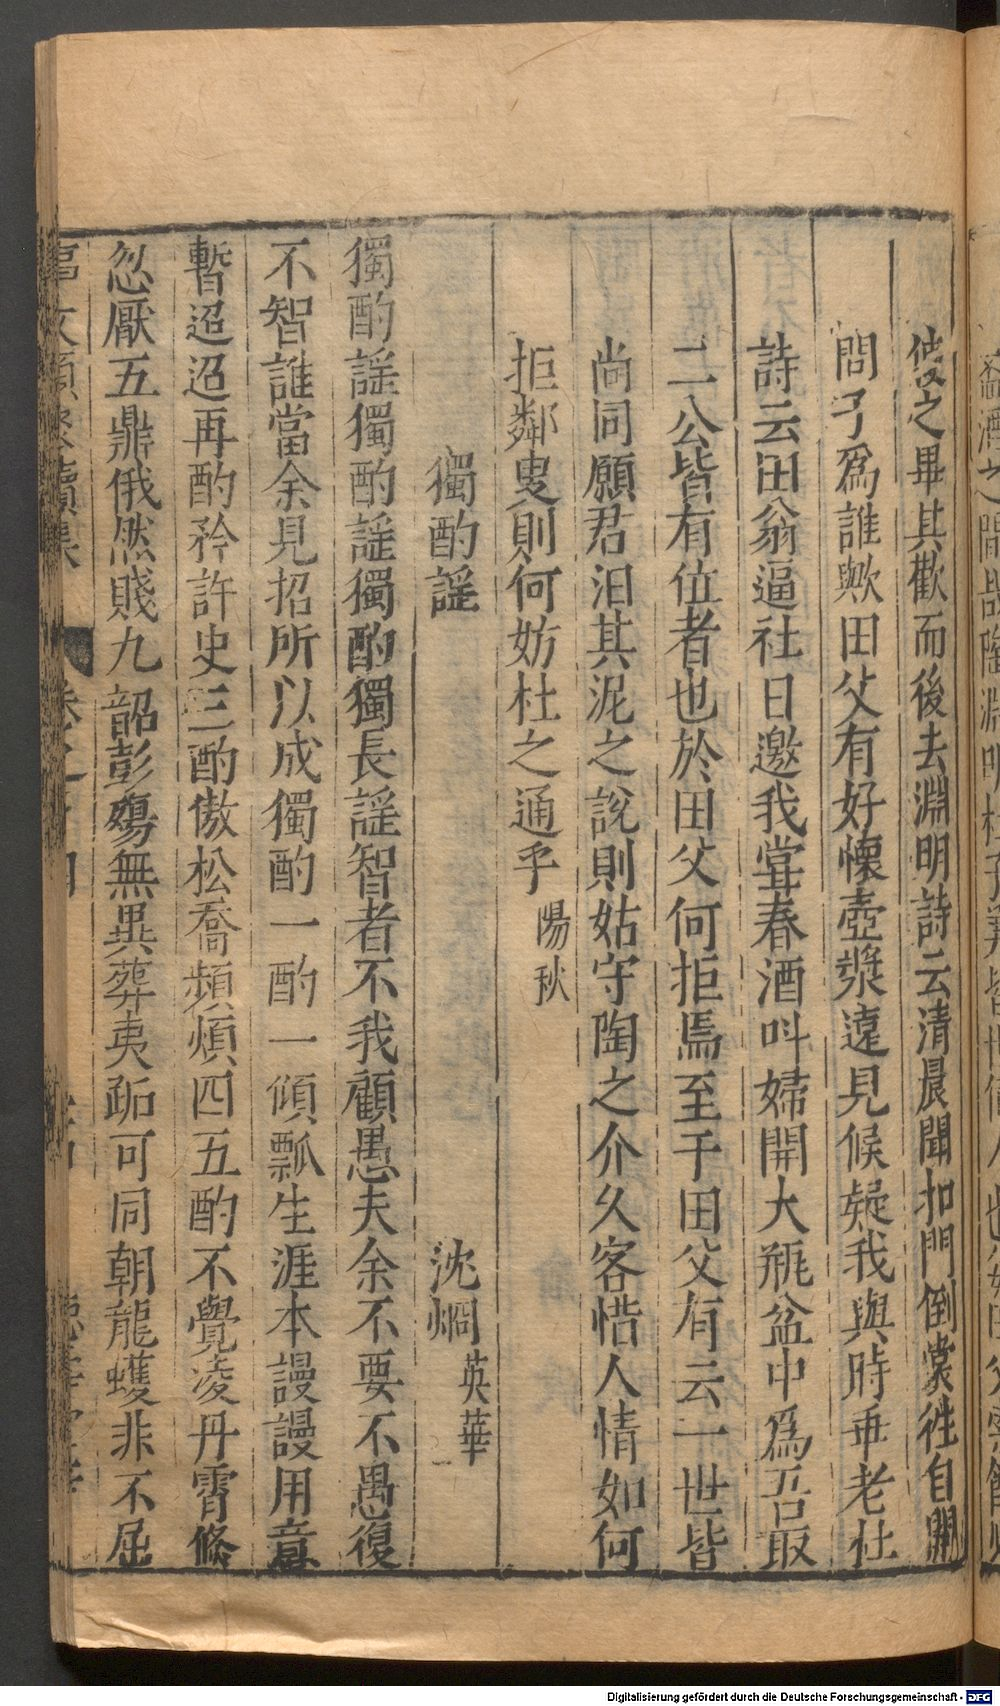 使之畢其歡而後去淵明詩云清晨聞扣門倒裳徃自開
問子爲誰歟田父有好懷壺漿遠見候疑我與時乖老杜
詩云田翁逼社日邀我甞春酒叫婦開大瓶盆中爲吾取
二公皆有位者也於田父何拒焉至于田父有云一世皆
尚同願君汨其泥之說則姑守陶之介久客惜人情如何
拒鄰叟則何妨杜之通乎 陽秋
獨酌謡 沈烱 英華
獨酌謡獨酌謡獨酌獨長謡智者不我顧愚夫余不要不愚復
不智誰當余見招所以成獨酌一酌一傾瓢生涯本謾謾用意
暫迢迢再酌矜許史三酌傲松喬頻煩四五酌不覺凌丹霄倏
忽厭五鼎俄然賤九韶彭殤無異葬夷跖可同朝龍蠖非不屈
事文類聚續集 卷之十四 德壽堂梓
Digitalisierung gefördert durch die Deutsche Forschungsgemeinschaft - DFG